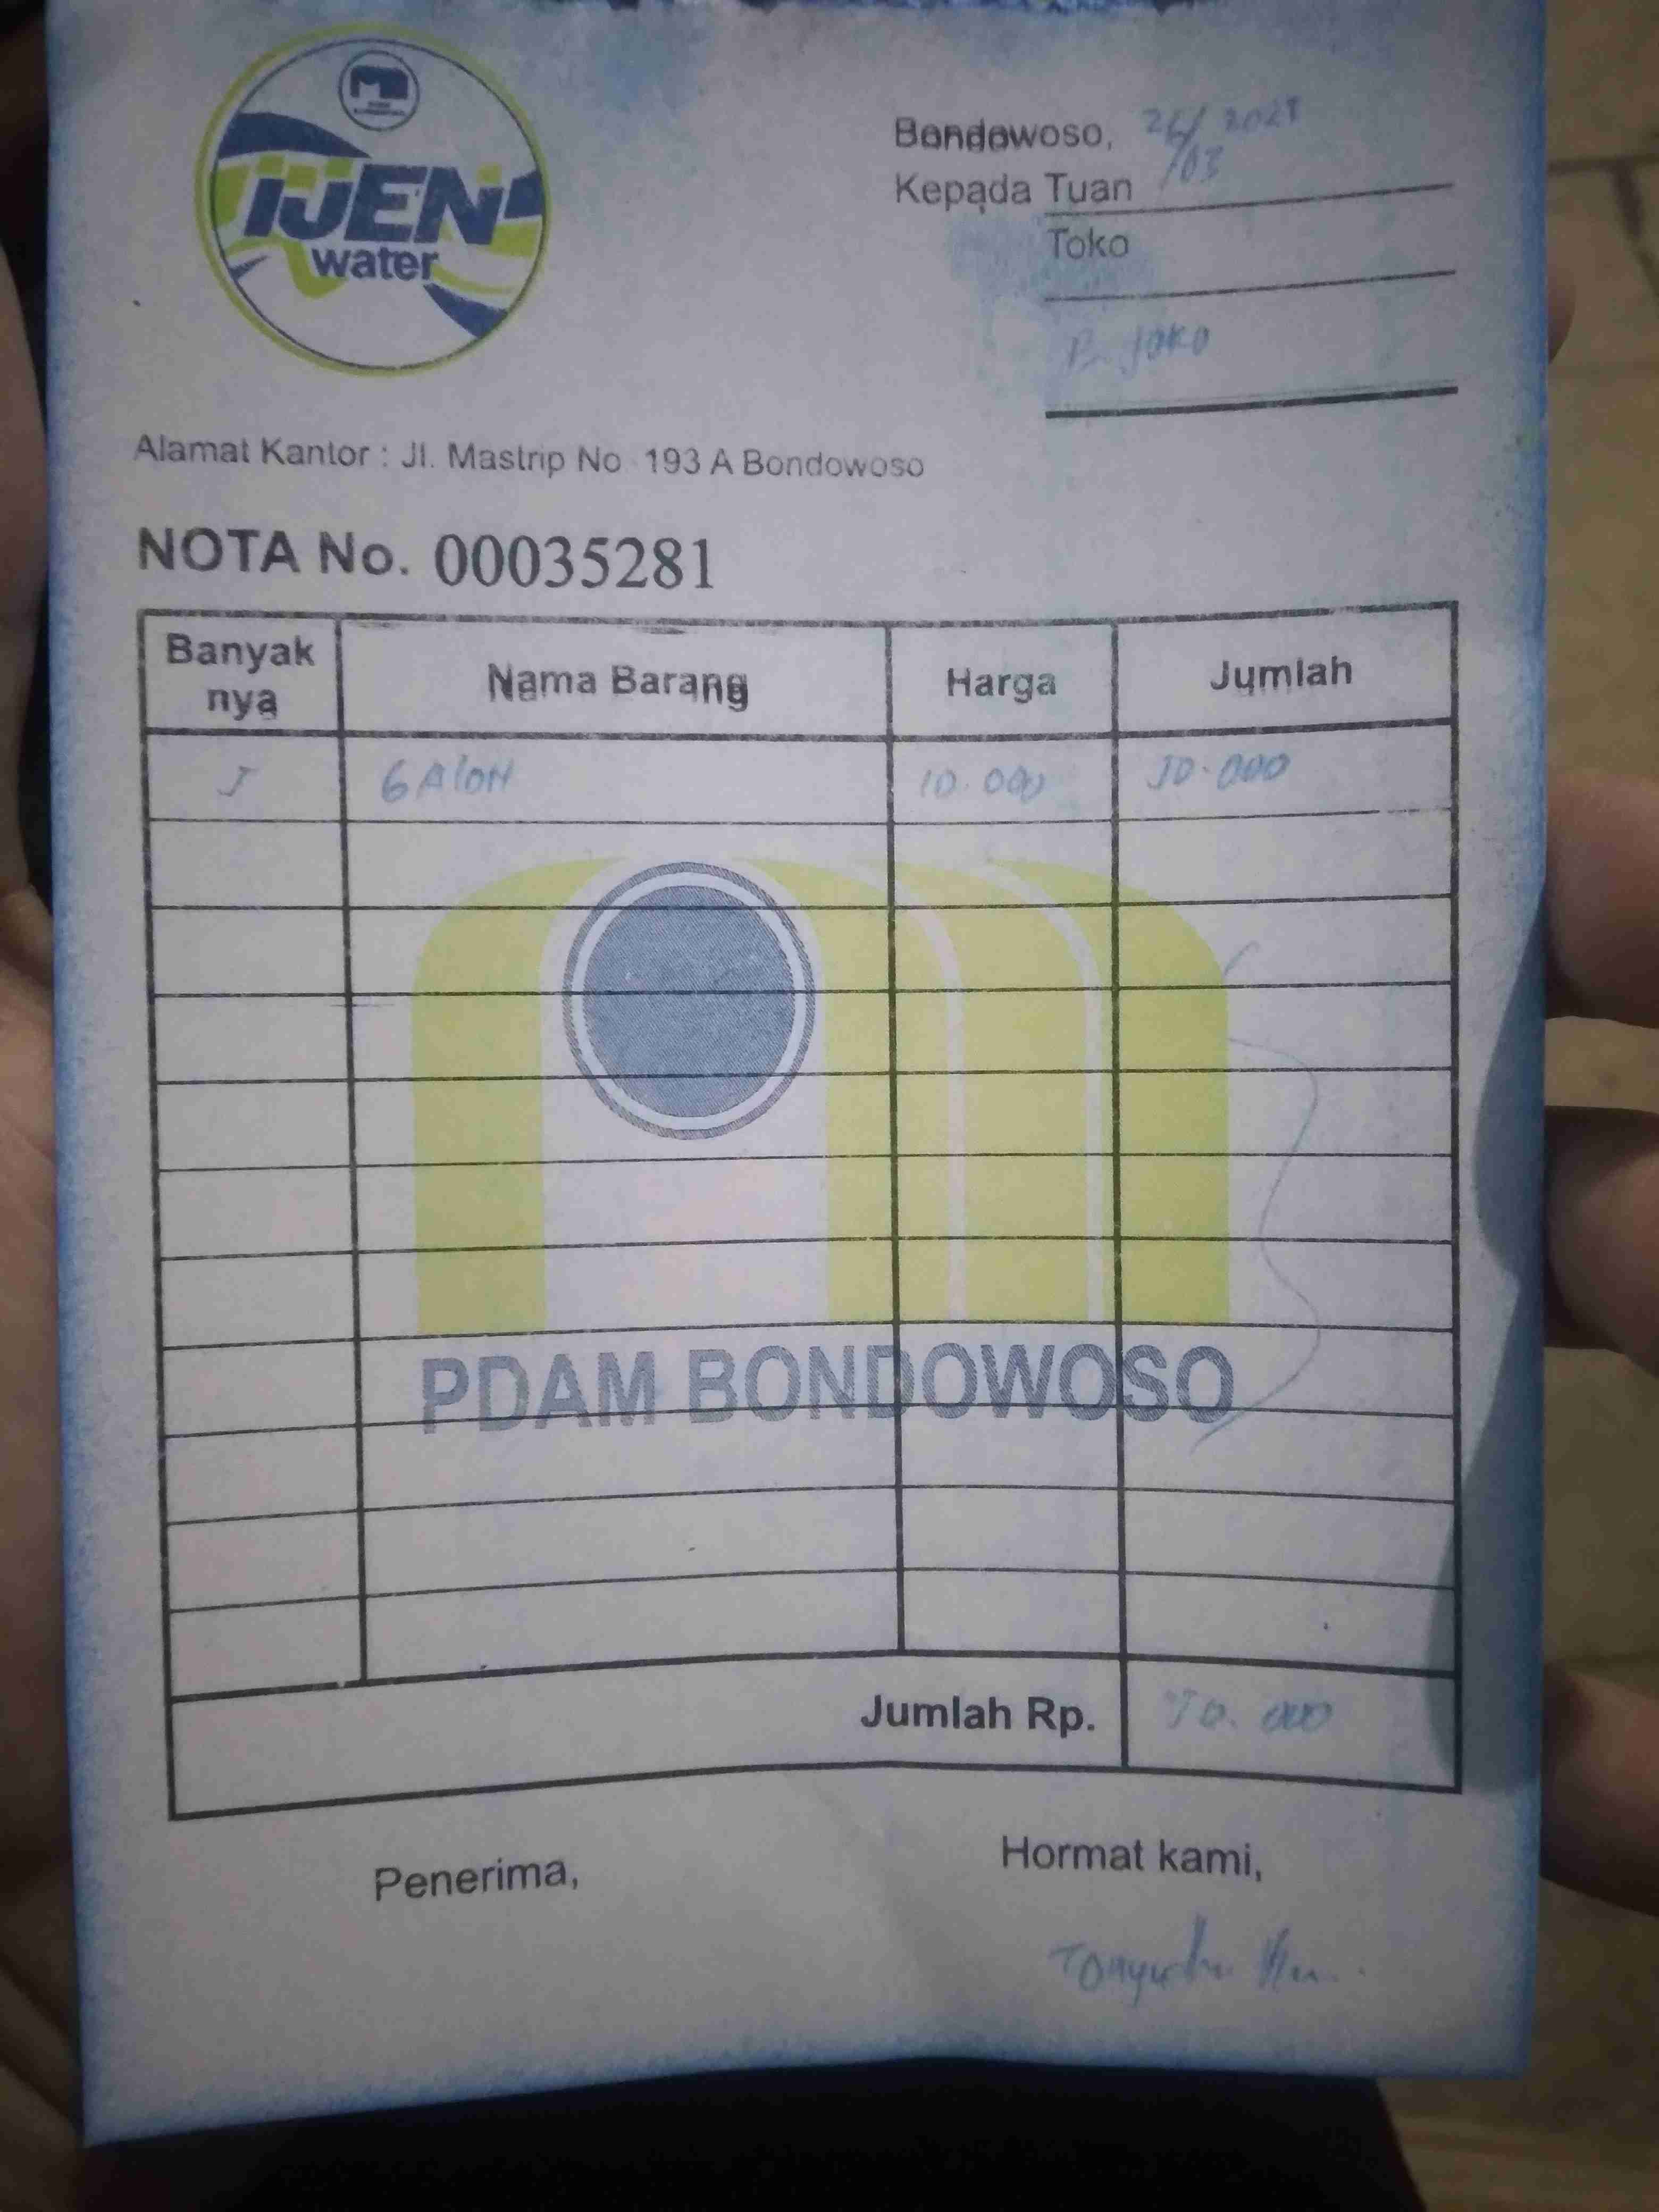 IJEN
water
Bondowoso,
Kepada Tuan
Toko
B. JOKO
Alamat Kantor : Jl. Mastrip No 193 A Bondowoso
NOTA No. 00035281
Banyak nya Nama Barang Harga Jumlah
GAlON 10.000
PDAM BONDOWOSO
Jumlah Rp.
Penerima,
Hormat kami,